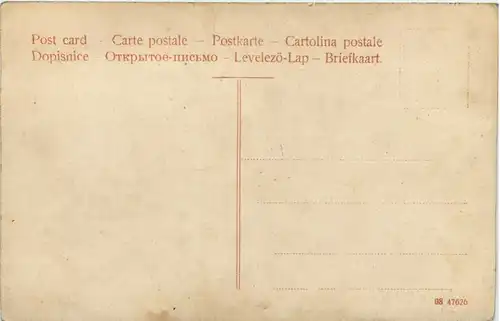 Post card – Carte postale – Postkarte – Cartolina postale
Dopisnice Открытое-письмо – Levelező-Lap – Briefkaart.
98 47626